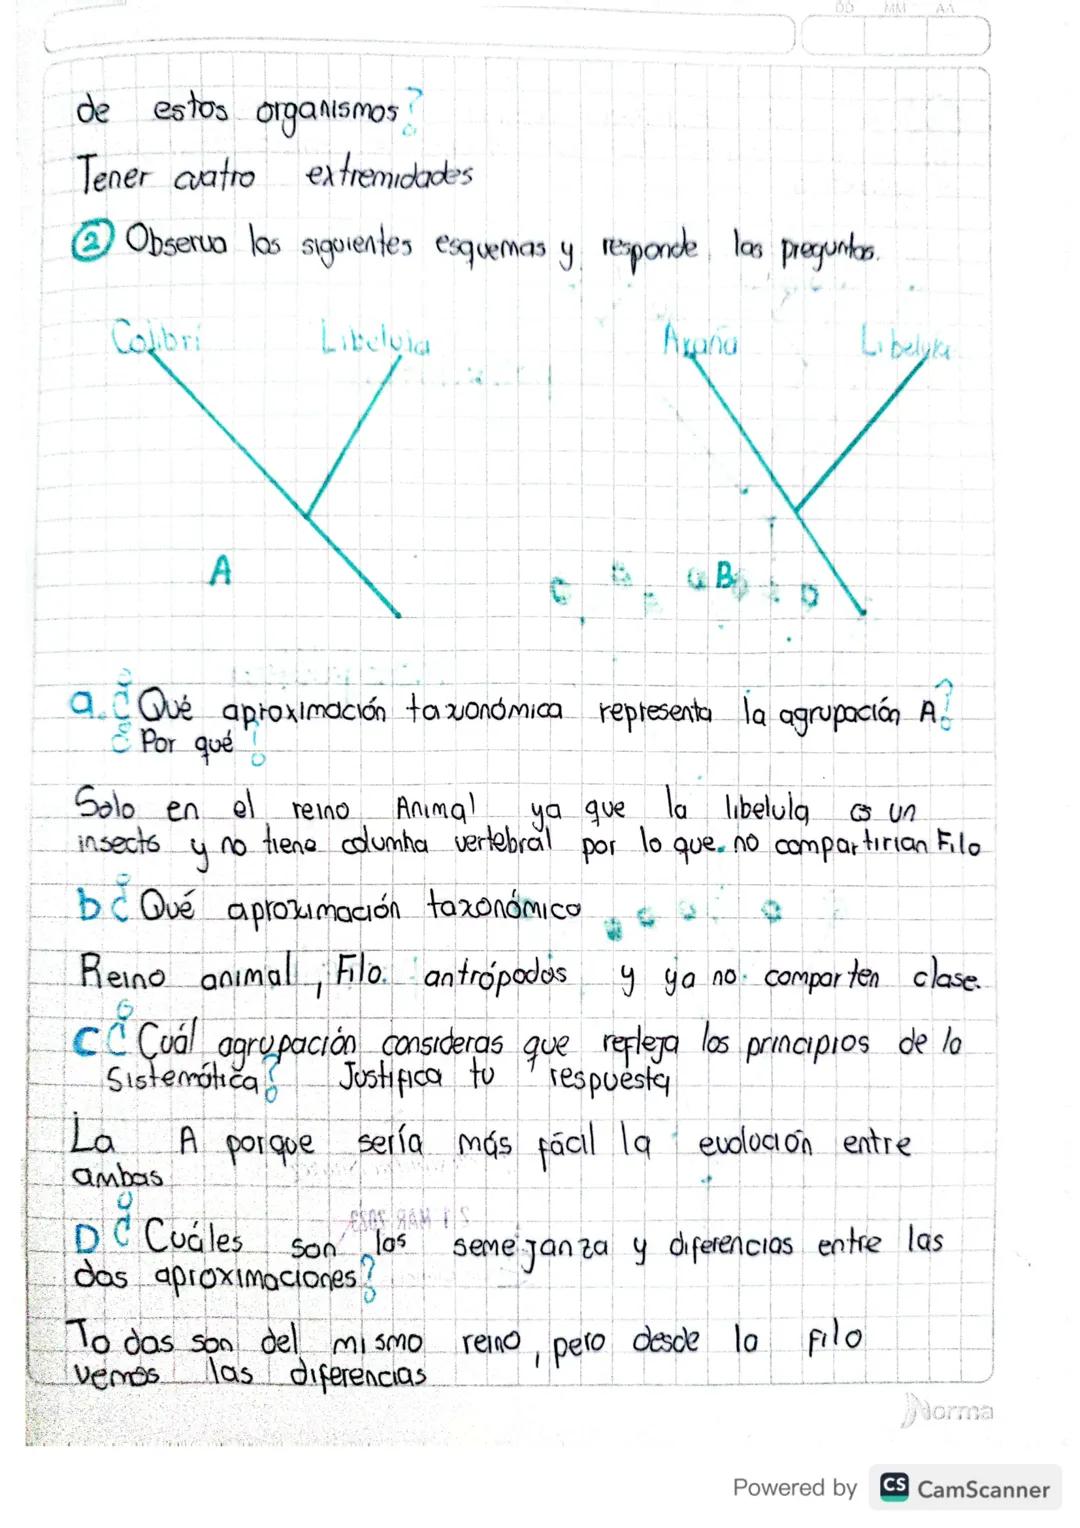 DD MM AA
de estos organismos?
Tener cuatro extremidades
② Observa los siguientes esquemas y responde las preguntas.
Colibrí Libelula Araña Libelula
A B
a. ¿Qué aproximación taxonómica representa la agrupación A?
¿Por qué?
Solo en el reino Animal ya que la libelula es un
insecto y no tiene columna vertebral por lo que no compartirian Filo
b ¿Qué aproximación taxonómico
Reino animal, Filo antrópodos y ya no comparten clase.
C ¿Cuál agrupación consideras que refleja los principios de la
Sistemática? Justifica tu respuesta
La A porque sería más fácil la evolución entre
ambas
D ¿Cuáles son las semejanza y diferencias entre las
dos aproximaciones?
Todas son del mismo reino, pero desde la Filo
vemos las diferencias
Norma
Powered by CS CamScanner